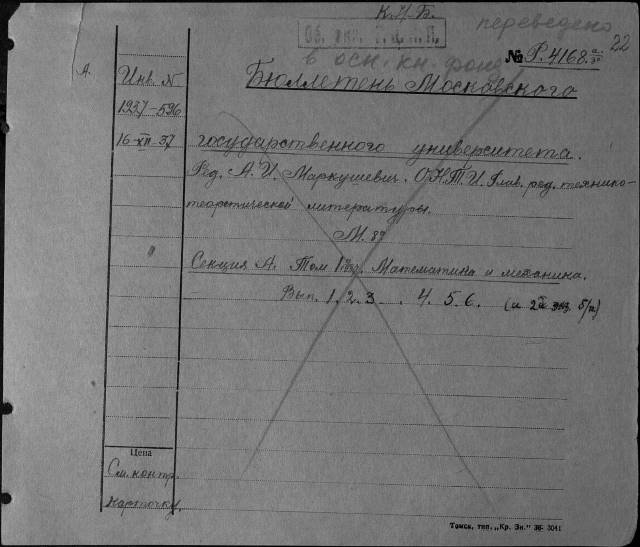 К.И.Б.
переведено
в осн. кн. фонд
22
№ Р.4168.
А.
Инв. N
1937-596
16-XII-37
Бюллетень Московского
государственного университета.
Ред. А. И. Маркушевич. ОНТИ. Глав. ред. технико-
теоретической литературы.
М. 37
"
Секция А. Том 1 Математика и механика.
Вып. 1. 2. 3 . . 4. 5. 6. (и 2й экз. б/н)
Цена
См. контр.
карточку.
Томск, тип. „Кр. Зн." 36- 3041